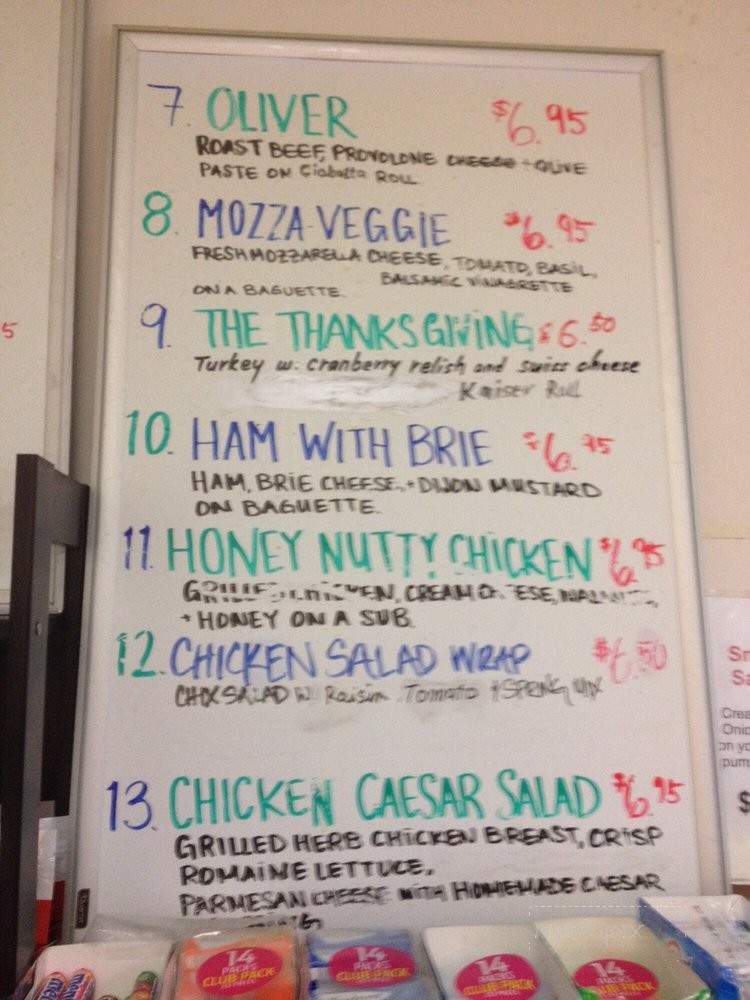 7. OLIVER $6.95
ROAST BEEF, PROVOLONE CHEESE + OLIVE
PASTE ON Ciabatta ROLL
8. MOZZA-VEGGIE $6.95
FRESH MOZZARELLA CHEESE, TOMATO, BASIL,
BALSAMIC VINAGRETTE
ON A BAGUETTE.
9. THE THANKSGIVING $6.50
Turkey w. cranberry relish and swiss cheese
Kaiser Roll
10. HAM WITH BRIE $6.95
HAM, BRIE CHEESE, + DIJON MUSTARD
ON BAGUETTE.
11. HONEY NUTTY CHICKEN $6.95
GRILLED CHICKEN, CREAM CHEESE,
+ HONEY ON A SUB.
12. CHICKEN SALAD WRAP $6.50
CHIX SALAD W. Raisin Tomato + SPRING MIX
13. CHICKEN CAESAR SALAD $6.95
GRILLED HERB CHICKEN BREAST, CRISP
ROMAINE LETTUCE,
PARMESAN CHEESE WITH HOMEMADE CAESAR
5
$
14
PACKS
CLUB PACK
14
PACKS
CLUB PACK
14
CLUB PACK
14
CLUB PACK